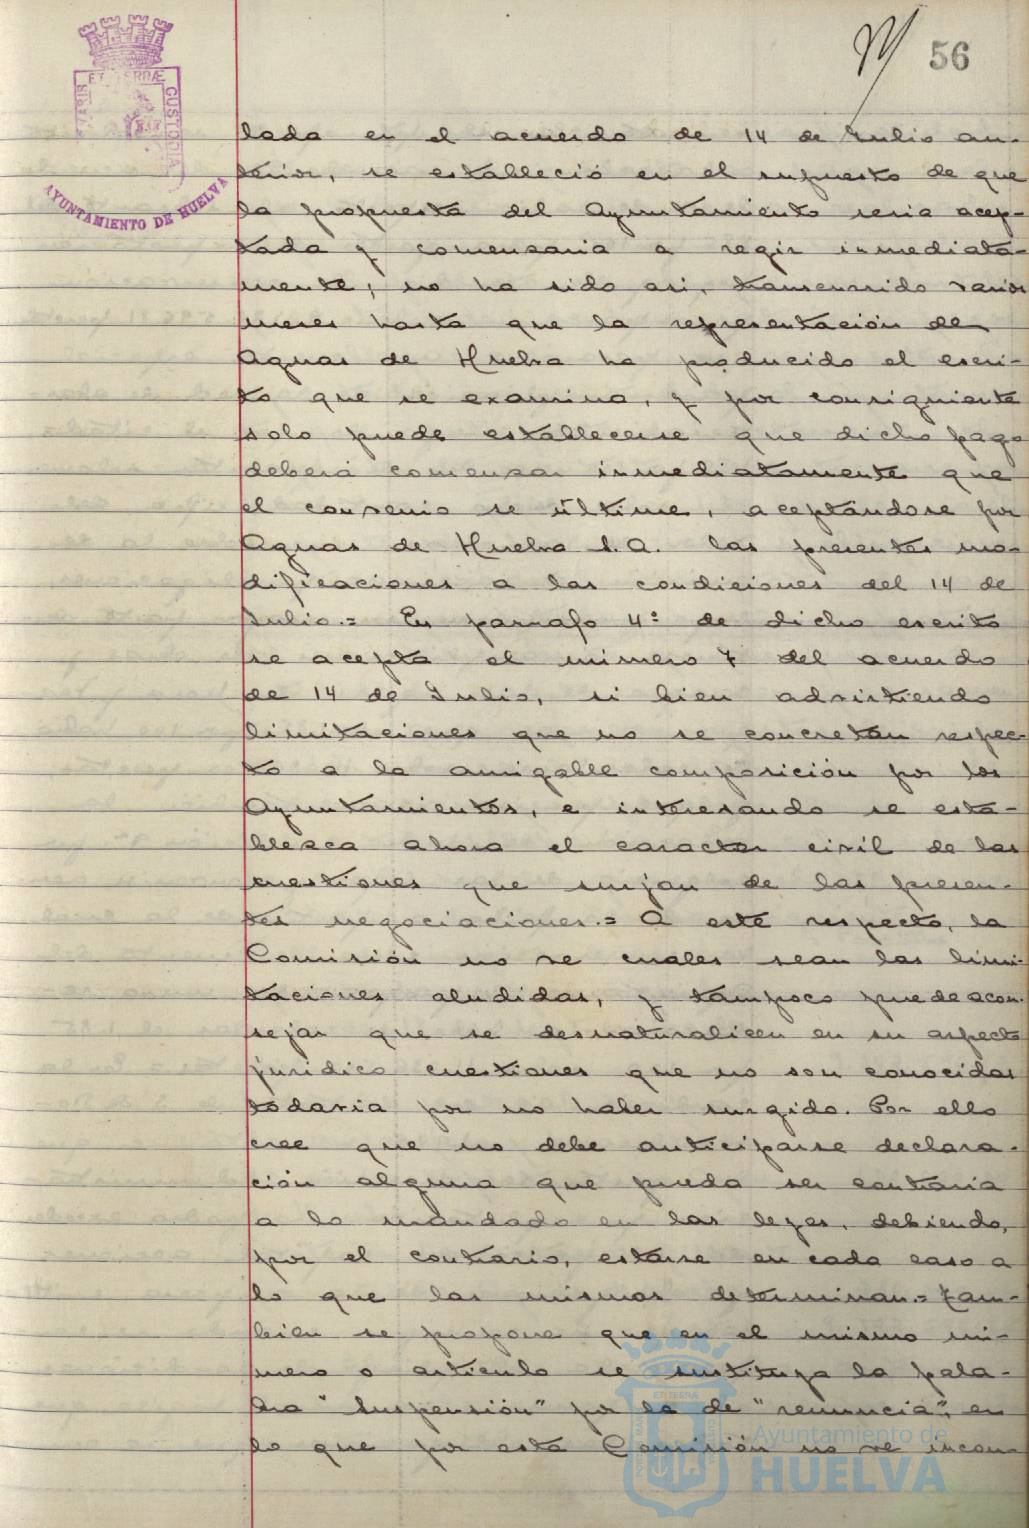 56
lada en el acuerdo de 14 de Julio an-
terior, se estableció en el supuesto de que
la propuesta del Ayuntamiento seria acep-
tada y comensaria a regir inmediata-
mente, no ha sido asi, transcurrido varios
meses hasta que la representación de
Aguas de Huelva ha producido el escri-
to que se examina, y por consiguiente
solo puede establecerse que dicho pago
deberá comensar inmediatamente que
el convenio se últime, aceptándose por
Aguas de Huelva S.A. las presentes mo-
dificaciones a las condiciones del 14 de
Julio.= En parrafo 4º de dicho escrito
se acepta el número 7 del acuerdo
de 14 de Julio, si bien advirtiendo
limitaciones que no se concretan respec-
to a la amigable composición por los
Ayuntamientos, e interesando se esta-
blezca ahora el caracter civil de las
cuestiones que surjan de las presen-
tes negociaciones.= A este respecto, la
Comisión no ve cuales sean las limi-
taciones aludidas, y tampoco puede acon-
sejar que se desnaturalicen en su aspecto
juridico cuestiones que no son conocidas
todavia por no haber surgido. Por ello
cree que no debe anticiparse declara-
ción alguna que pueda ser contraria
a lo mandado en las leyes, debiendo,
por el contrario, estarse en cada caso a
lo que las mismas determinan.= Tam-
bién se propone que en el mismo nú-
mero o articulo se sustituya la pala-
bra "Suspensión" por la de "renuncia", en
lo que por esta Comisión no ve incon-
ET TERRÆ CUSTODIA
AYUNTAMIENTO DE HUELVA
Ayuntamiento de
HUELVA